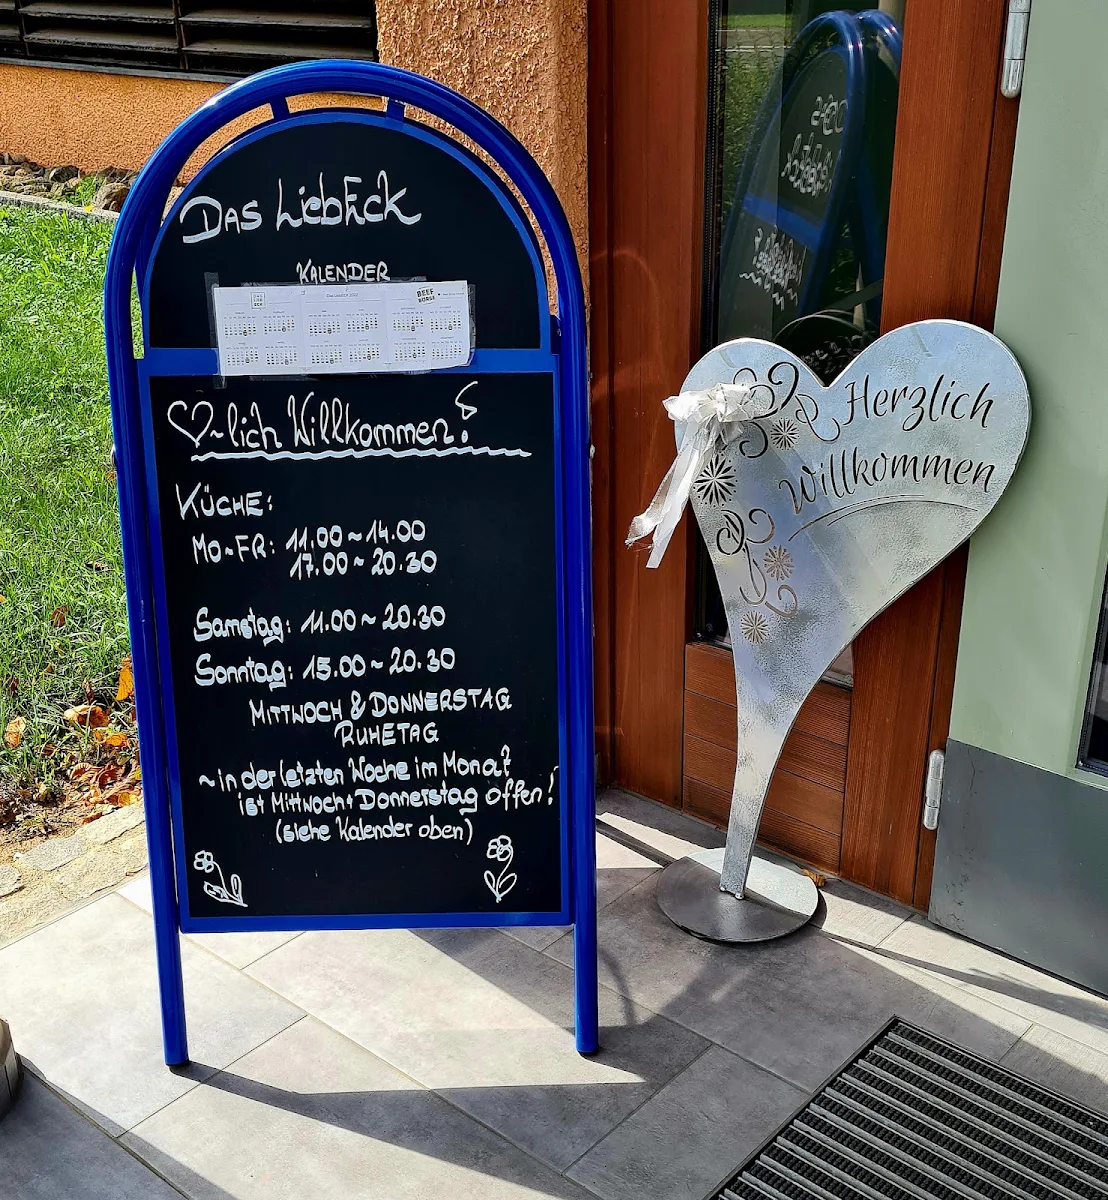 DAS LiebEck
KALENDER
BEEF
♡~lich Willkommen!
KÜCHE:
MO~FR: 11.00 ~ 14.00
17.00 ~ 20.30
Samstag: 11.00 ~ 20.30
Sonntag: 15.00 ~ 20.30
MITTWOCH & DONNERSTAG
RUHETAG
~ in der letzten Woche im Monat
ist Mittwoch + Donnerstag offen!
(siehe Kalender oben)
Herzlich
Willkommen